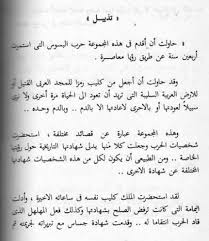 « تذييل »
« حاولت أن أقدم في هذه المجموعة حرب البسوس التى استمرت
أربعين سنة عن طريق رؤيا معاصرة .
وقد حاولت أن أجعل من كليب رمزا للمجد العربى القتيل أو
للأرض العربية السليبة التى تريد أن تعود الى الحياة مرة أخرى ولا نرى
سبيلا لعودتها أو بالأحرى لاعادتها الا بالدم .. وبالدم وحده ..
وهذه المجموعة عبارة عن قصائد مختلفة ، استحضرت
شخصيات الحرب وجعلت كلا منها يدلى بشهادته التاريخية حول رؤيتها
الخاصة .. ومن الطبيعى أن يكون لكل من هذه الشخصيات شهادتها
المختلفة عن شهادة الآخرى ..
لقد استحضرت الملك كليب نفسه فى ساعاته الأخيرة ، وأدلت
اليمامة التى كانت ترفض الصلح بشهادتها وكذلك فعل المهلهل الذى
قاد الحرب انتقاما .. وشهادة جساس مع تبريراته لجريمته ثم